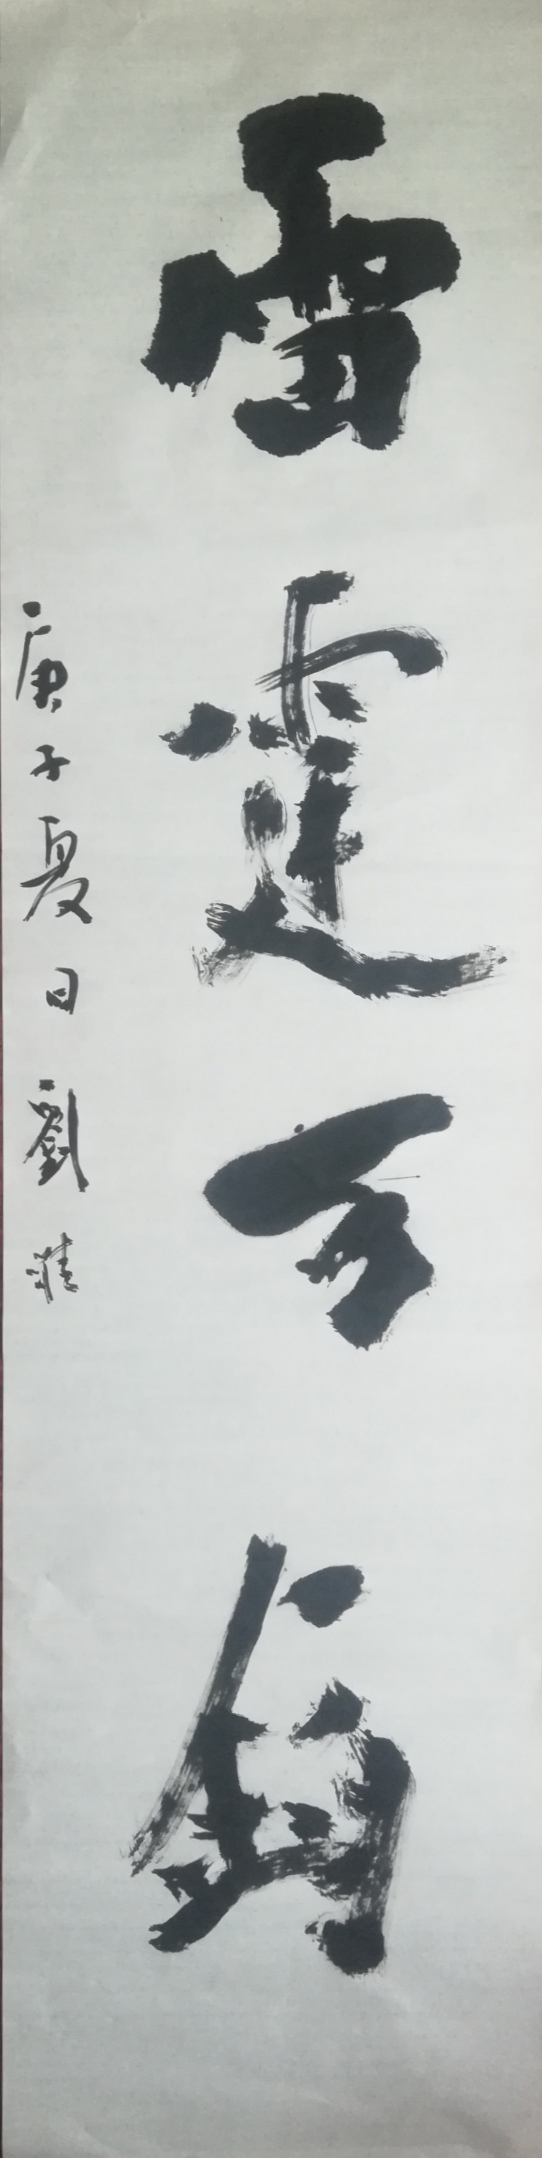 雷霆万钧
庚子夏日劉